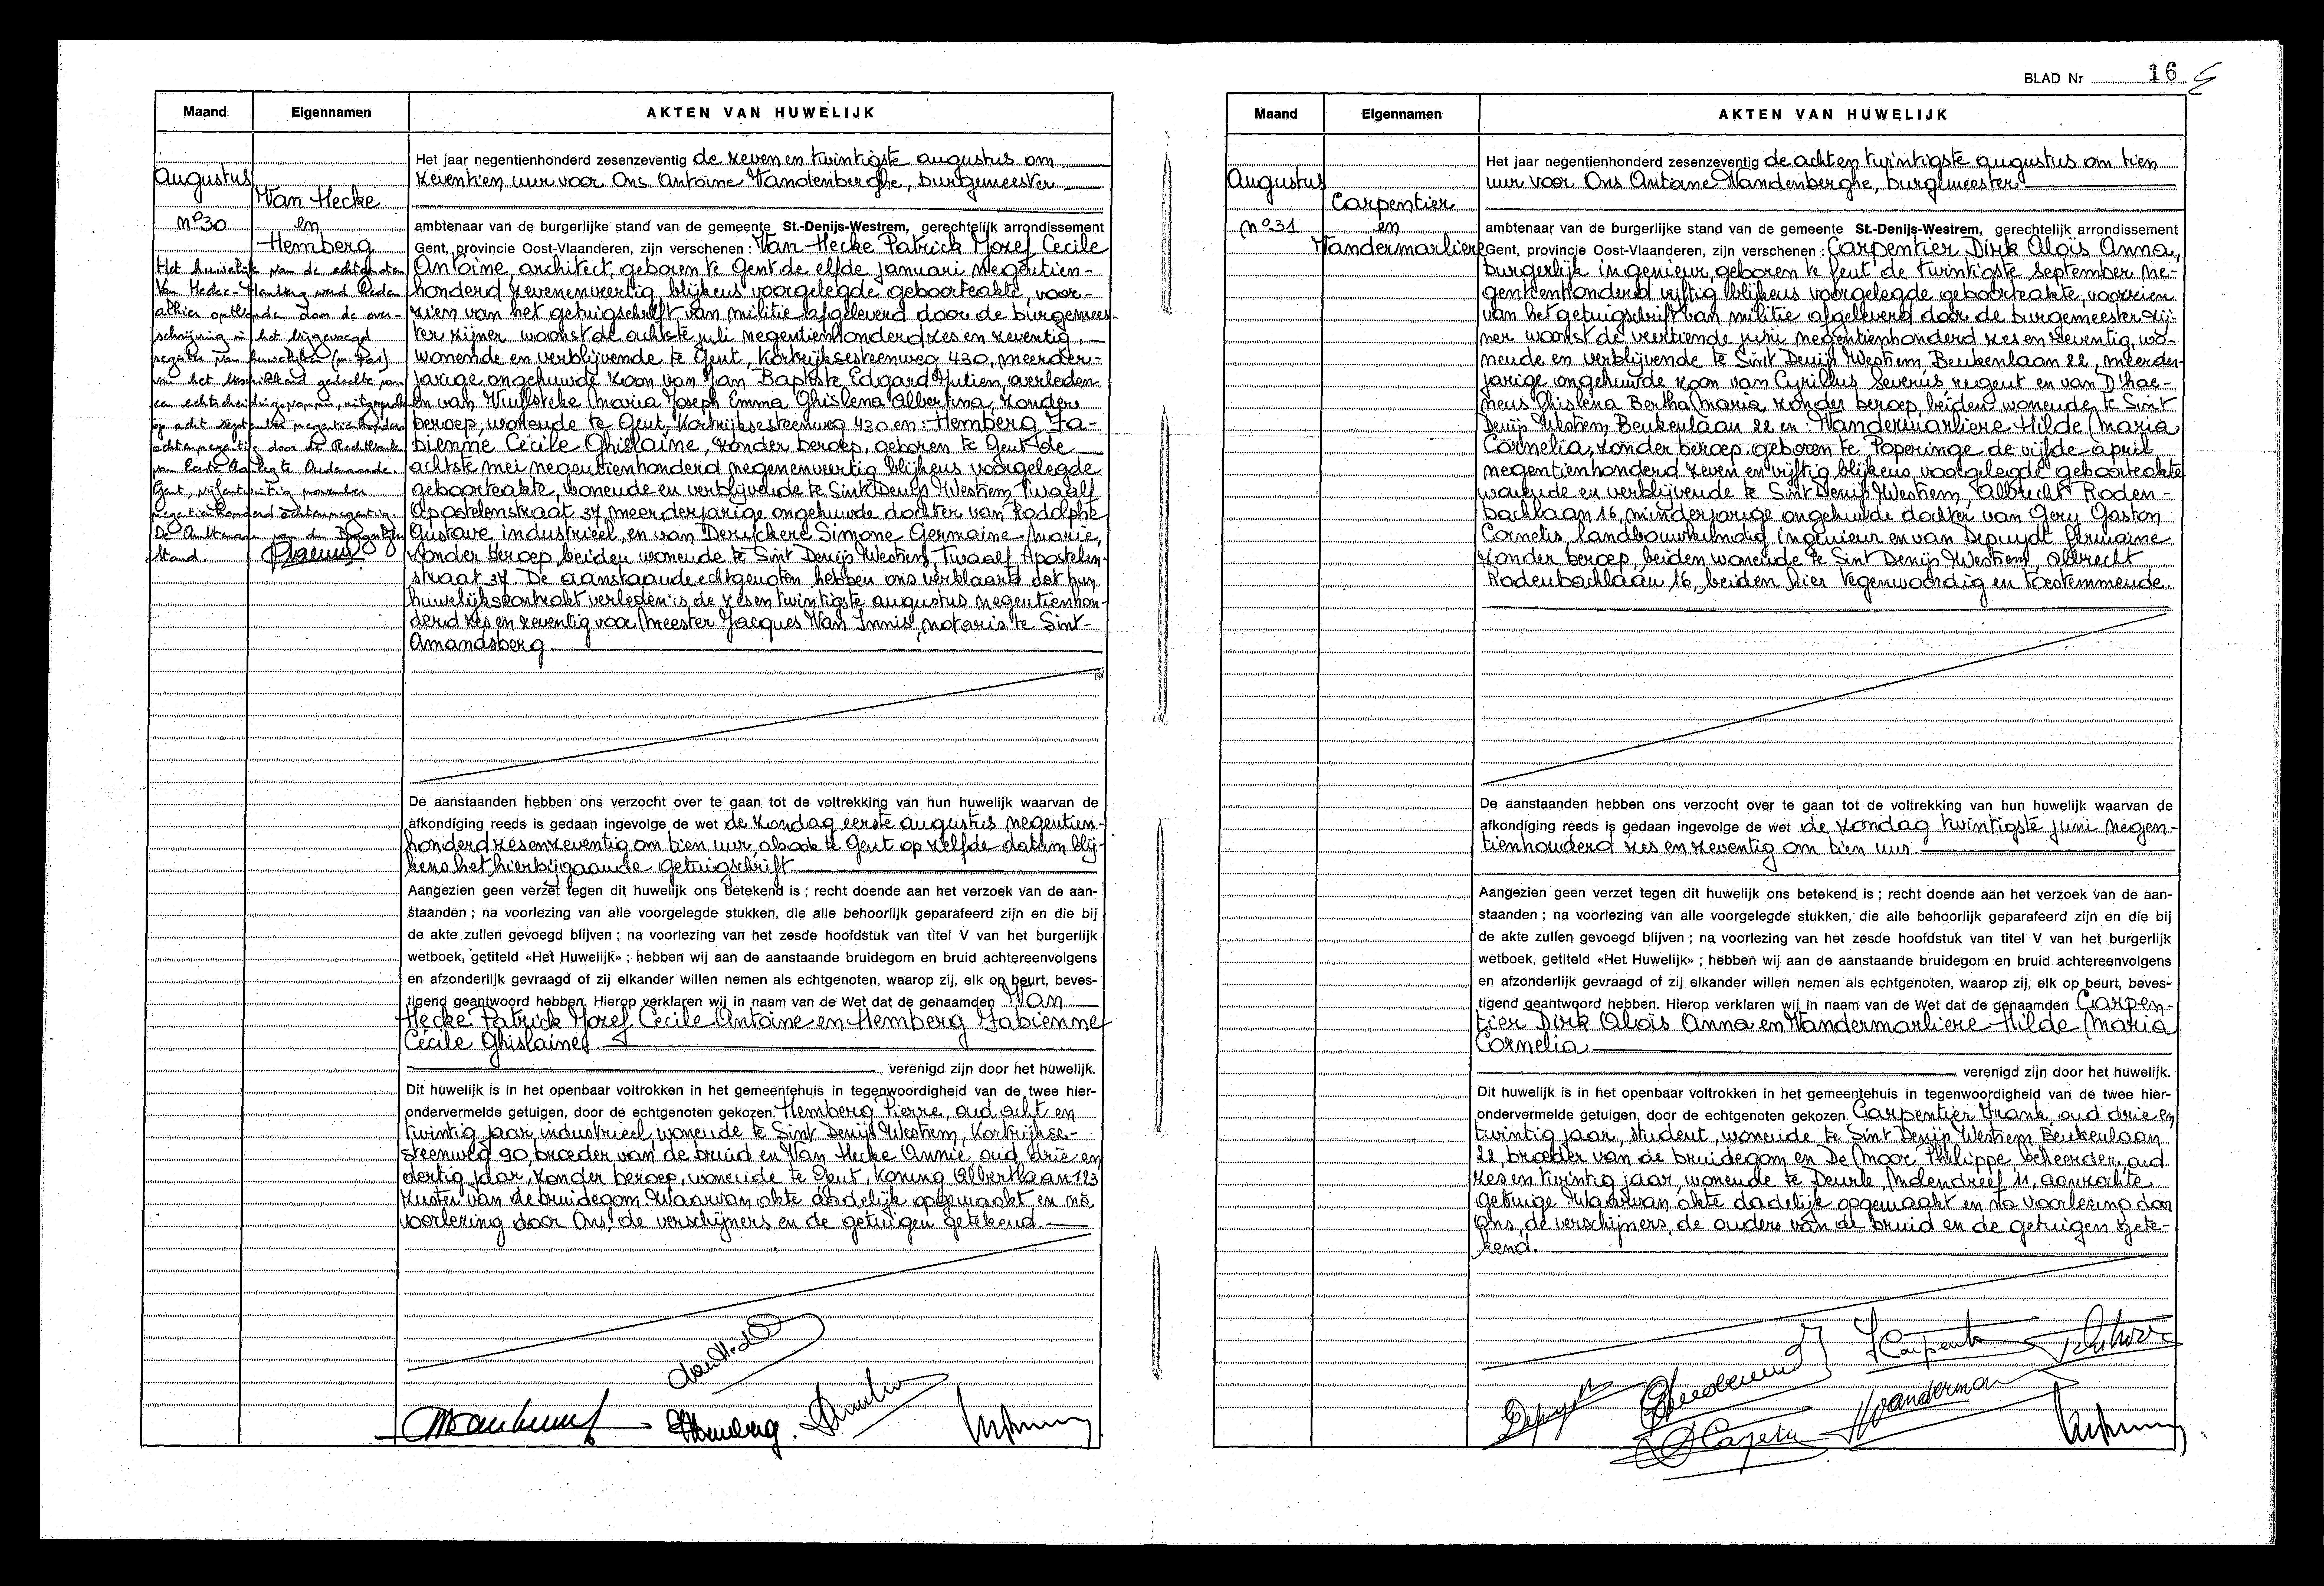 Maand
Eigennamen
AKTEN VAN HUWELIJK
Augustus
Van Hecke
n° 30
en
Hemberg
Het huwelijk van de echtgenoten
Van Hecke-Hemberg werd heden
alhier ontbonden door de over-
schrijving in het bijgevoegd
register van huwelijken
van het beschikkend gedeelte van
een echtscheidingsvonnis, uitgesproken
op acht september negentienhonderd
achtennegentig door de Rechtbank
van Eerste Aanleg te Oudenaarde.
Gent, vijfentwintig november
negentienhonderd achtennegentig.
De Ambtenaar van de Burgerlijke
Stand.
Het jaar negentienhonderd zesenzeventig de zeven en twintigste augustus om
zeventien uur voor Ons Antoine Vandenberghe, burgemeester
ambtenaar van de burgerlijke stand van de gemeente St.-Denijs-Westrem, gerechtelijk arrondissement
Gent, provincie Oost-Vlaanderen, zijn verschenen : Van Hecke Patrick Jozef Cecile
Antoine, architect, geboren te Gent de elfde januari negentien-
honderd zevenenveertig, blijkens voorgelegde geboorteakte, voor-
zien van het getuigschrift van militie afgeleverd door de burgemees-
ter zijner woonst de achtste juli negentienhonderd zes en zeventig,
wonende en verblijvende te Gent, Kortrijksesteenweg 430, meerder-
jarige ongehuwde zoon van Jan Baptiste Edgard Julien, overleden
en van Vuylsteke Maria Joseph Emma Ghislena Albertina, zonder
beroep, wonende te Gent, Kortrijksesteenweg 430 en : Hemberg Fa-
bienne Cécile Ghislaine, zonder beroep, geboren te Gent de
achtste mei negentienhonderd negenenveertig blijkens voorgelegde
geboorteakte, wonende en verblijvende te Sint Denijs Westrem, Twaalf
Apostelenstraat 37, meerderjarige ongehuwde dochter van Rodolphe
Gustave industrieel, en van Deryckere Simone Germaine Marie,
zonder beroep, beiden wonende te Sint Denijs Westrem, Twaalf Apostelen-
straat 37. De aanstaande echtgenoten hebben ons verklaard dat hun
huwelijkskontrakt verleden is de zes en twintigste augustus negentienhon-
derd zes en zeventig voor Meester Jacques Van Innis, notaris te Sint-
Amandsberg.
De aanstaanden hebben ons verzocht over te gaan tot de voltrekking van hun huwelijk waarvan de
afkondiging reeds is gedaan ingevolge de wet de zondag eerste augustus negentien-
honderd zesenzeventig om tien uur alsook te Gent op zelfde datum blij-
kens het hierbijgaande getuigschrift.
Aangezien geen verzet tegen dit huwelijk ons betekend is ; recht doende aan het verzoek van de aan-
staanden ; na voorlezing van alle voorgelegde stukken, die alle behoorlijk geparafeerd zijn en die bij
de akte zullen gevoegd blijven ; na voorlezing van het zesde hoofdstuk van titel V van het burgerlijk
wetboek, getiteld «Het Huwelijk» ; hebben wij aan de aanstaande bruidegom en bruid achtereenvolgens
en afzonderlijk gevraagd of zij elkander willen nemen als echtgenoten, waarop zij, elk op beurt, beves-
tigend geantwoord hebben. Hierop verklaren wij in naam van de Wet dat de genaamden Van
Hecke Patrick Jozef Cecile Antoine en Hemberg Fabienne
Cécile Ghislaine
verenigd zijn door het huwelijk.
Dit huwelijk is in het openbaar voltrokken in het gemeentehuis in tegenwoordigheid van de twee hier-
ondervermelde getuigen, door de echtgenoten gekozen. Hemberg Pierre, oud acht en
twintig jaar, industrieel, wonende te Sint Denijs Westrem, Kortrijkse-
steenweg 90, broeder van de bruid en Van Hecke Annie, oud drie en
dertig jaar, zonder beroep, wonende te Gent, Koning Albertlaan 123
zuster van de bruidegom. Waarvan akte dadelijk opgemaakt en na
voorlezing door Ons, de verschijners en de getuigen getekend.
BLAD Nr 16
Maand
Eigennamen
AKTEN VAN HUWELIJK
Augustus
Carpentier
n° 31
en
Vandermarliere
Het jaar negentienhonderd zesenzeventig de acht en twintigste augustus om tien
uur voor Ons Antoine Vandenberghe, burgemeester
ambtenaar van de burgerlijke stand van de gemeente St.-Denijs-Westrem, gerechtelijk arrondissement
Gent, provincie Oost-Vlaanderen, zijn verschenen : Carpentier Dirk Aloïs Anna,
burgerlijk ingenieur, geboren te Gent de twintigste september ne-
gentienhonderd vijftig blijkens voorgelegde geboorteakte, voorzien
van het getuigschrift van militie afgeleverd door de burgemeester zij-
ner woonst de veertiende juni negentienhonderd zes en zeventig, wo-
nende en verblijvende te Sint Denijs Westrem, Beukenlaan 22, meerder-
jarige ongehuwde zoon van Cyrillus Severus regent en van D'hae-
neus Ghislena Bertha Maria, zonder beroep, beiden wonende te Sint
Denijs Westrem Beukenlaan 22 en : Vandermarliere Hilde Maria
Cornelia, zonder beroep, geboren te Poperinge de vijfde april
negentienhonderd zeven en vijftig blijkens voorgelegde geboorteakte
wonende en verblijvende te Sint Denijs Westrem, Albrecht Roden-
bachlaan 16, minderjarige ongehuwde dochter van Gery Gaston
Cornelis landbouwkundig ingenieur en van Depuydt Germaine
zonder beroep, beiden wonende te Sint Denijs Westrem, Albrecht
Rodenbachlaan 16, beiden hier tegenwoordig en toestemmende.
De aanstaanden hebben ons verzocht over te gaan tot de voltrekking van hun huwelijk waarvan de
afkondiging reeds is gedaan ingevolge de wet de zondag twintigste juni negen-
tienhonderd zes en zeventig om tien uur.
Aangezien geen verzet tegen dit huwelijk ons betekend is ; recht doende aan het verzoek van de aan-
staanden ; na voorlezing van alle voorgelegde stukken, die alle behoorlijk geparafeerd zijn en die bij
de akte zullen gevoegd blijven ; na voorlezing van het zesde hoofdstuk van titel V van het burgerlijk
wetboek, getiteld «Het Huwelijk» ; hebben wij aan de aanstaande bruidegom en bruid achtereenvolgens
en afzonderlijk gevraagd of zij elkander willen nemen als echtgenoten, waarop zij, elk op beurt, beves-
tigend geantwoord hebben. Hierop verklaren wij in naam van de Wet dat de genaamden Carpen-
tier Dirk Aloïs Anna en Vandermarliere Hilde Maria
Cornelia
verenigd zijn door het huwelijk.
Dit huwelijk is in het openbaar voltrokken in het gemeentehuis in tegenwoordigheid van de twee hier-
ondervermelde getuigen, door de echtgenoten gekozen. Carpentier Frank, oud drie en
twintig jaar, student, wonende te Sint Denijs Westrem Beukenlaan
22, broeder van de bruidegom en De Moor Philippe beheerder, oud
zes en twintig jaar, wonende te Deurle Molendreef 11, aanzochte
getuige. Waarvan akte dadelijk opgemaakt en na voorlezing door
Ons, de verschijners, de ouders van de bruid en de getuigen gete-
kend.